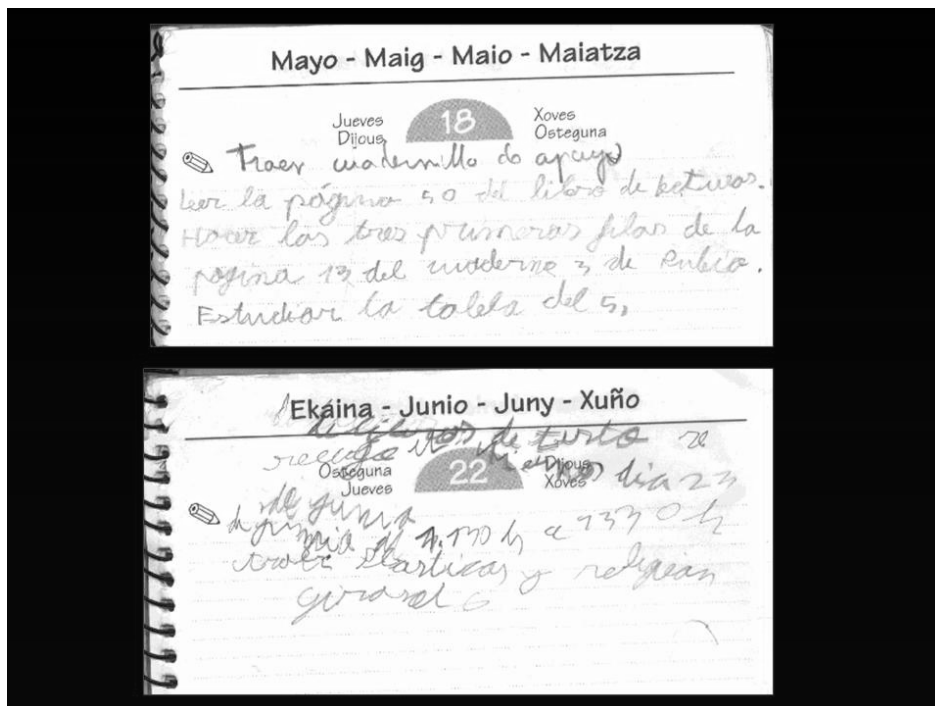 Mayo - Maig - Maio - Maiatza
Jueves
Dijous
18
Xoves
Osteguna
Traer cuadernillo de apoyo
Leer la página 50 del libro de lecturas.
Hacer las tres primeras filas de la
página 13 del cuaderno 3 de Rubio.
Estudiar la tabla del 5,
Ekaina - Junio - Juny - Xuño
los libros de texto se
Osteguna
Jueves
22
Dijous
Xoves
dia 23
de junio
de junio de
traer plasticas y religion
girasol 6